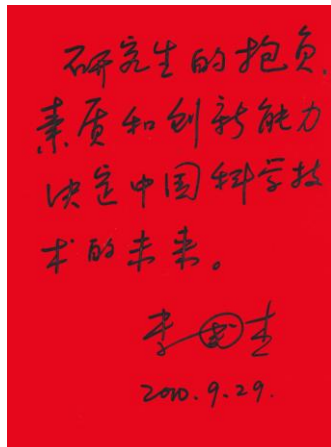 研究生的抱负、
素质和创新能力
决定中国科学技
术的未来。
李国杰
2010.9.29.